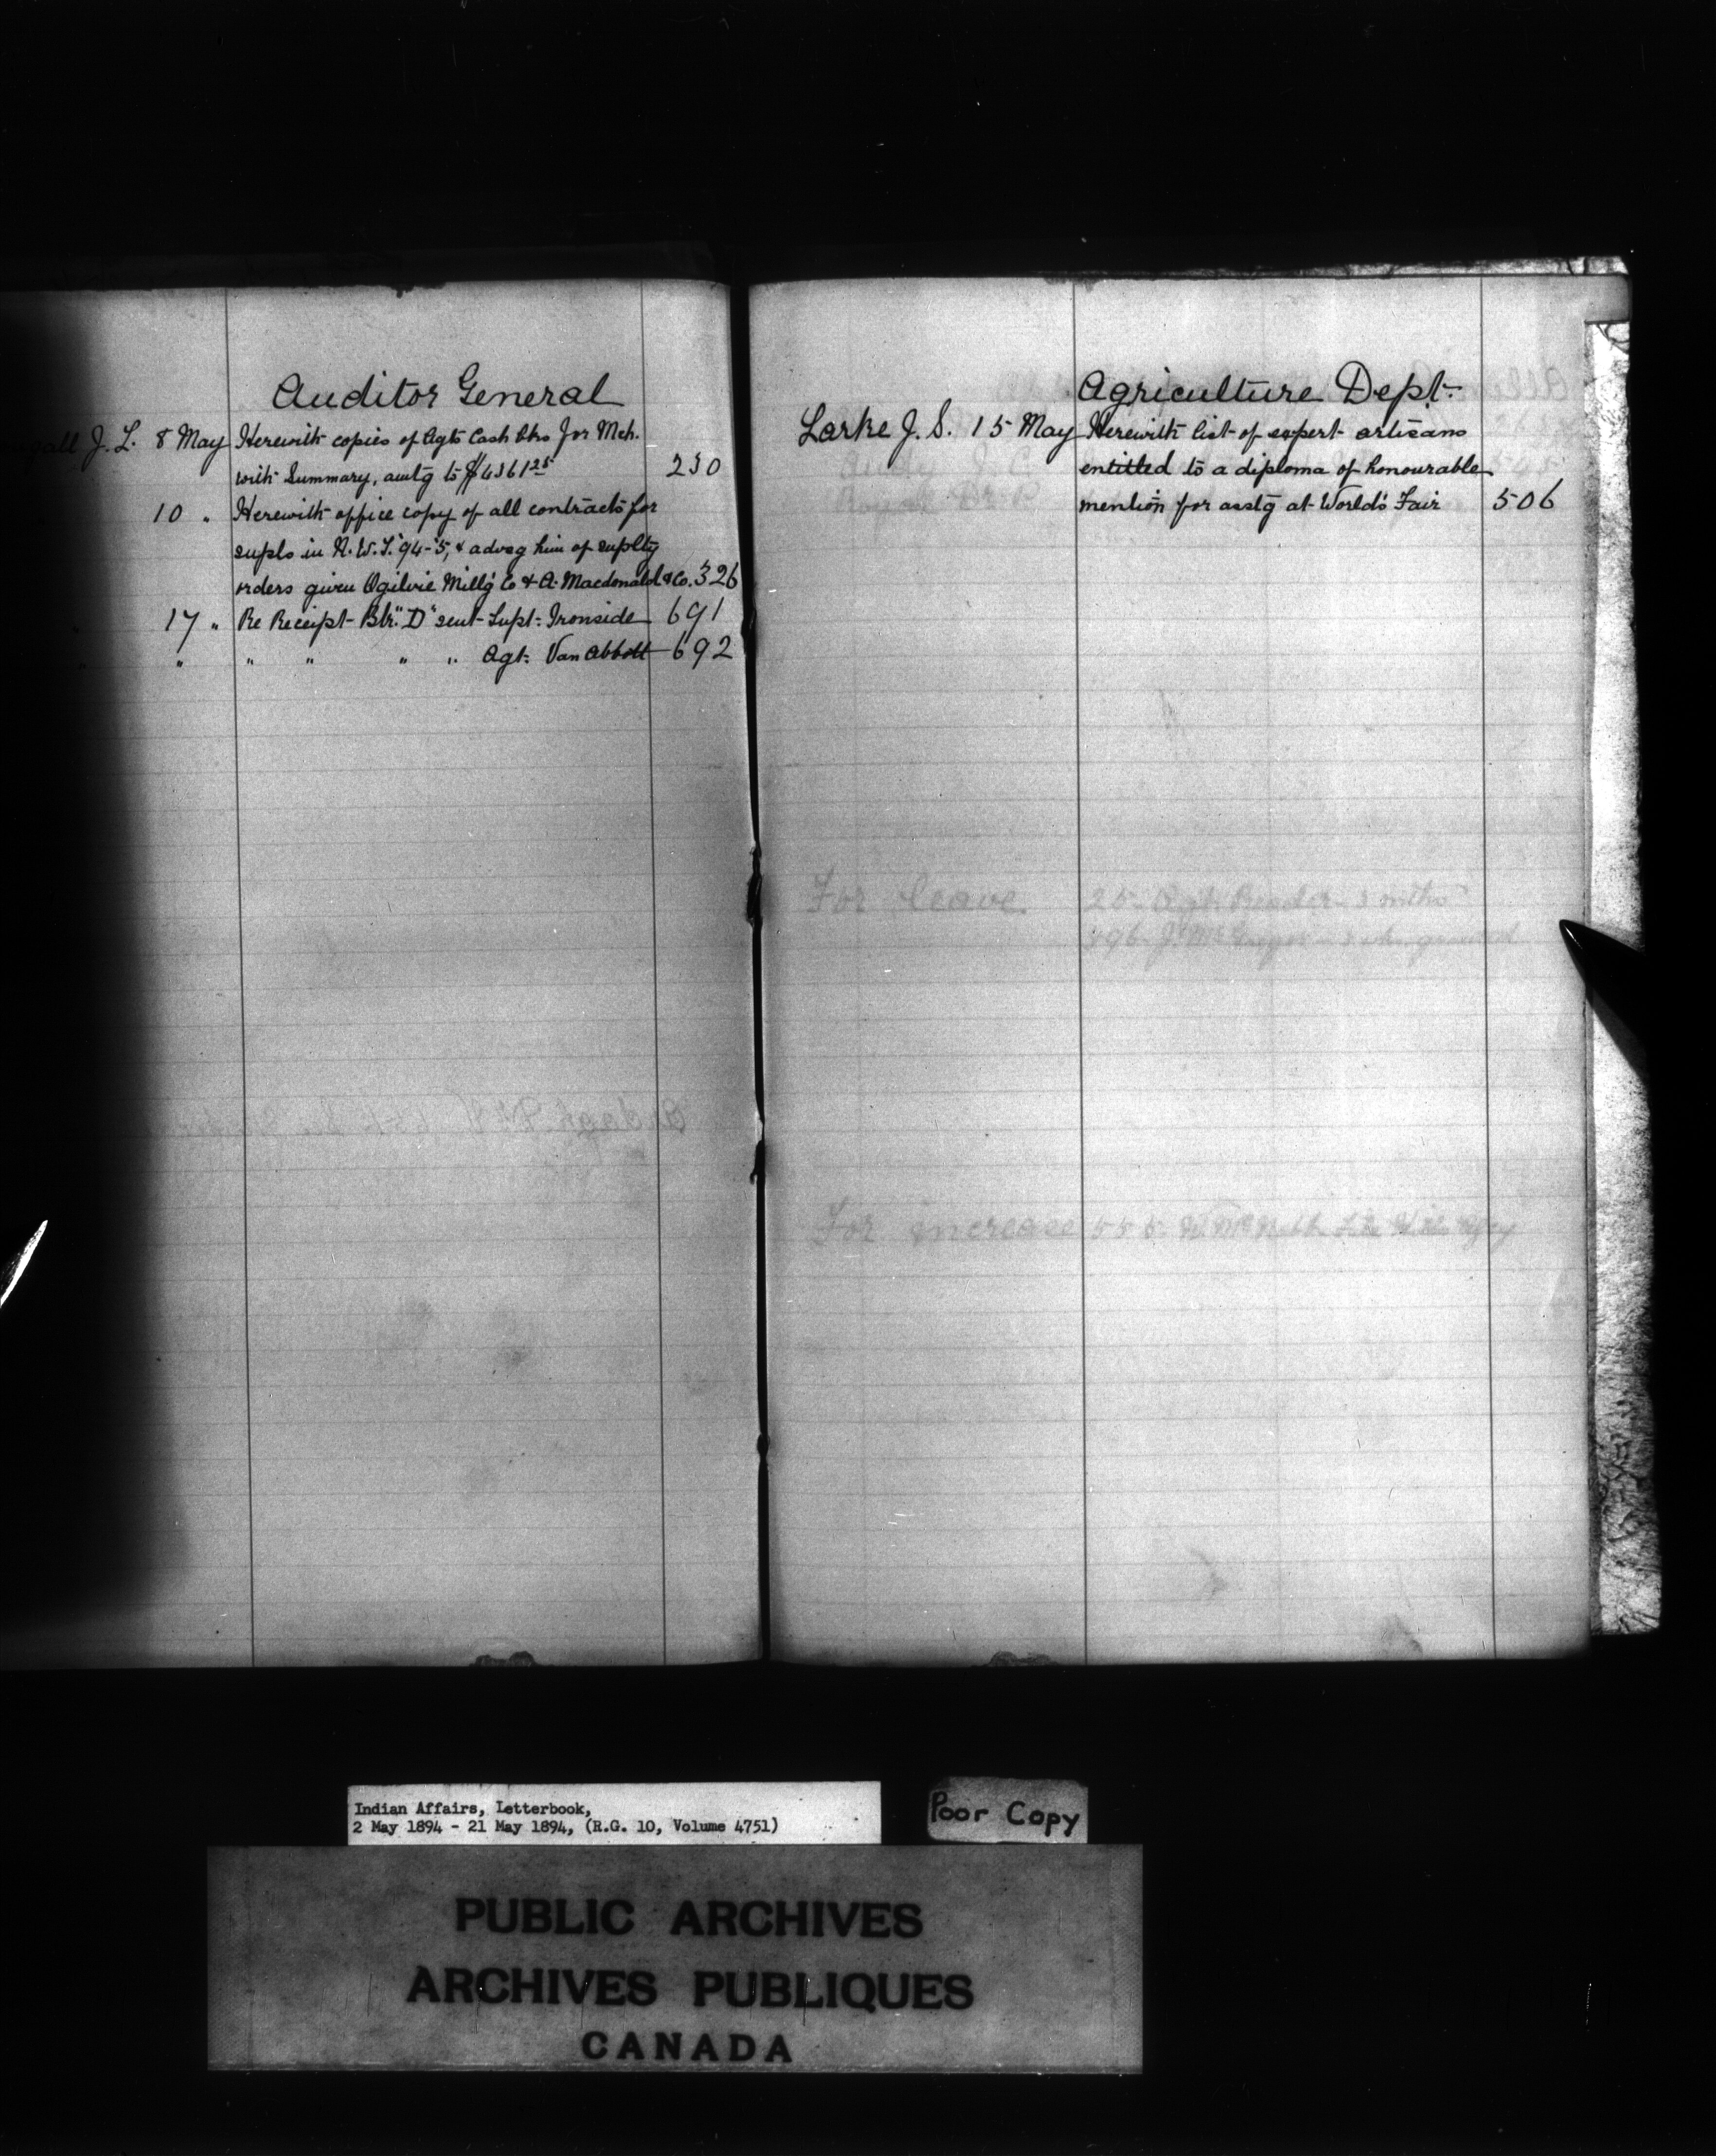 Auditor General
J. L. 8 May Herewith copies of Agts Cash Bks for Mch.
with Summary, amtg to $4361 25 230
10 " Herewith office copy of all contracts for
supls in N.W.T. '94-'5, & advsg him of suplty
orders given Ogilvie Mill'g Co & A. Macdonald & Co. 326
17 " Re Receipt Bk. "D" sent Supt. Ironside 691
" " " " " Agt. Van Abbott 692
Agriculture Dept.
Larke J. S. 15 May Herewith list of expert artisans
entitled to a diploma of honourable
mention for asstg at World's Fair 506
For leave 25 Agt. Reader 3 mths
granted
For increase 555
Indian Affairs, Letterbook,
2 May 1894 - 21 May 1894, (R.G. 10, Volume 4751)
Poor Copy
PUBLIC ARCHIVES
ARCHIVES PUBLIQUES
CANADA